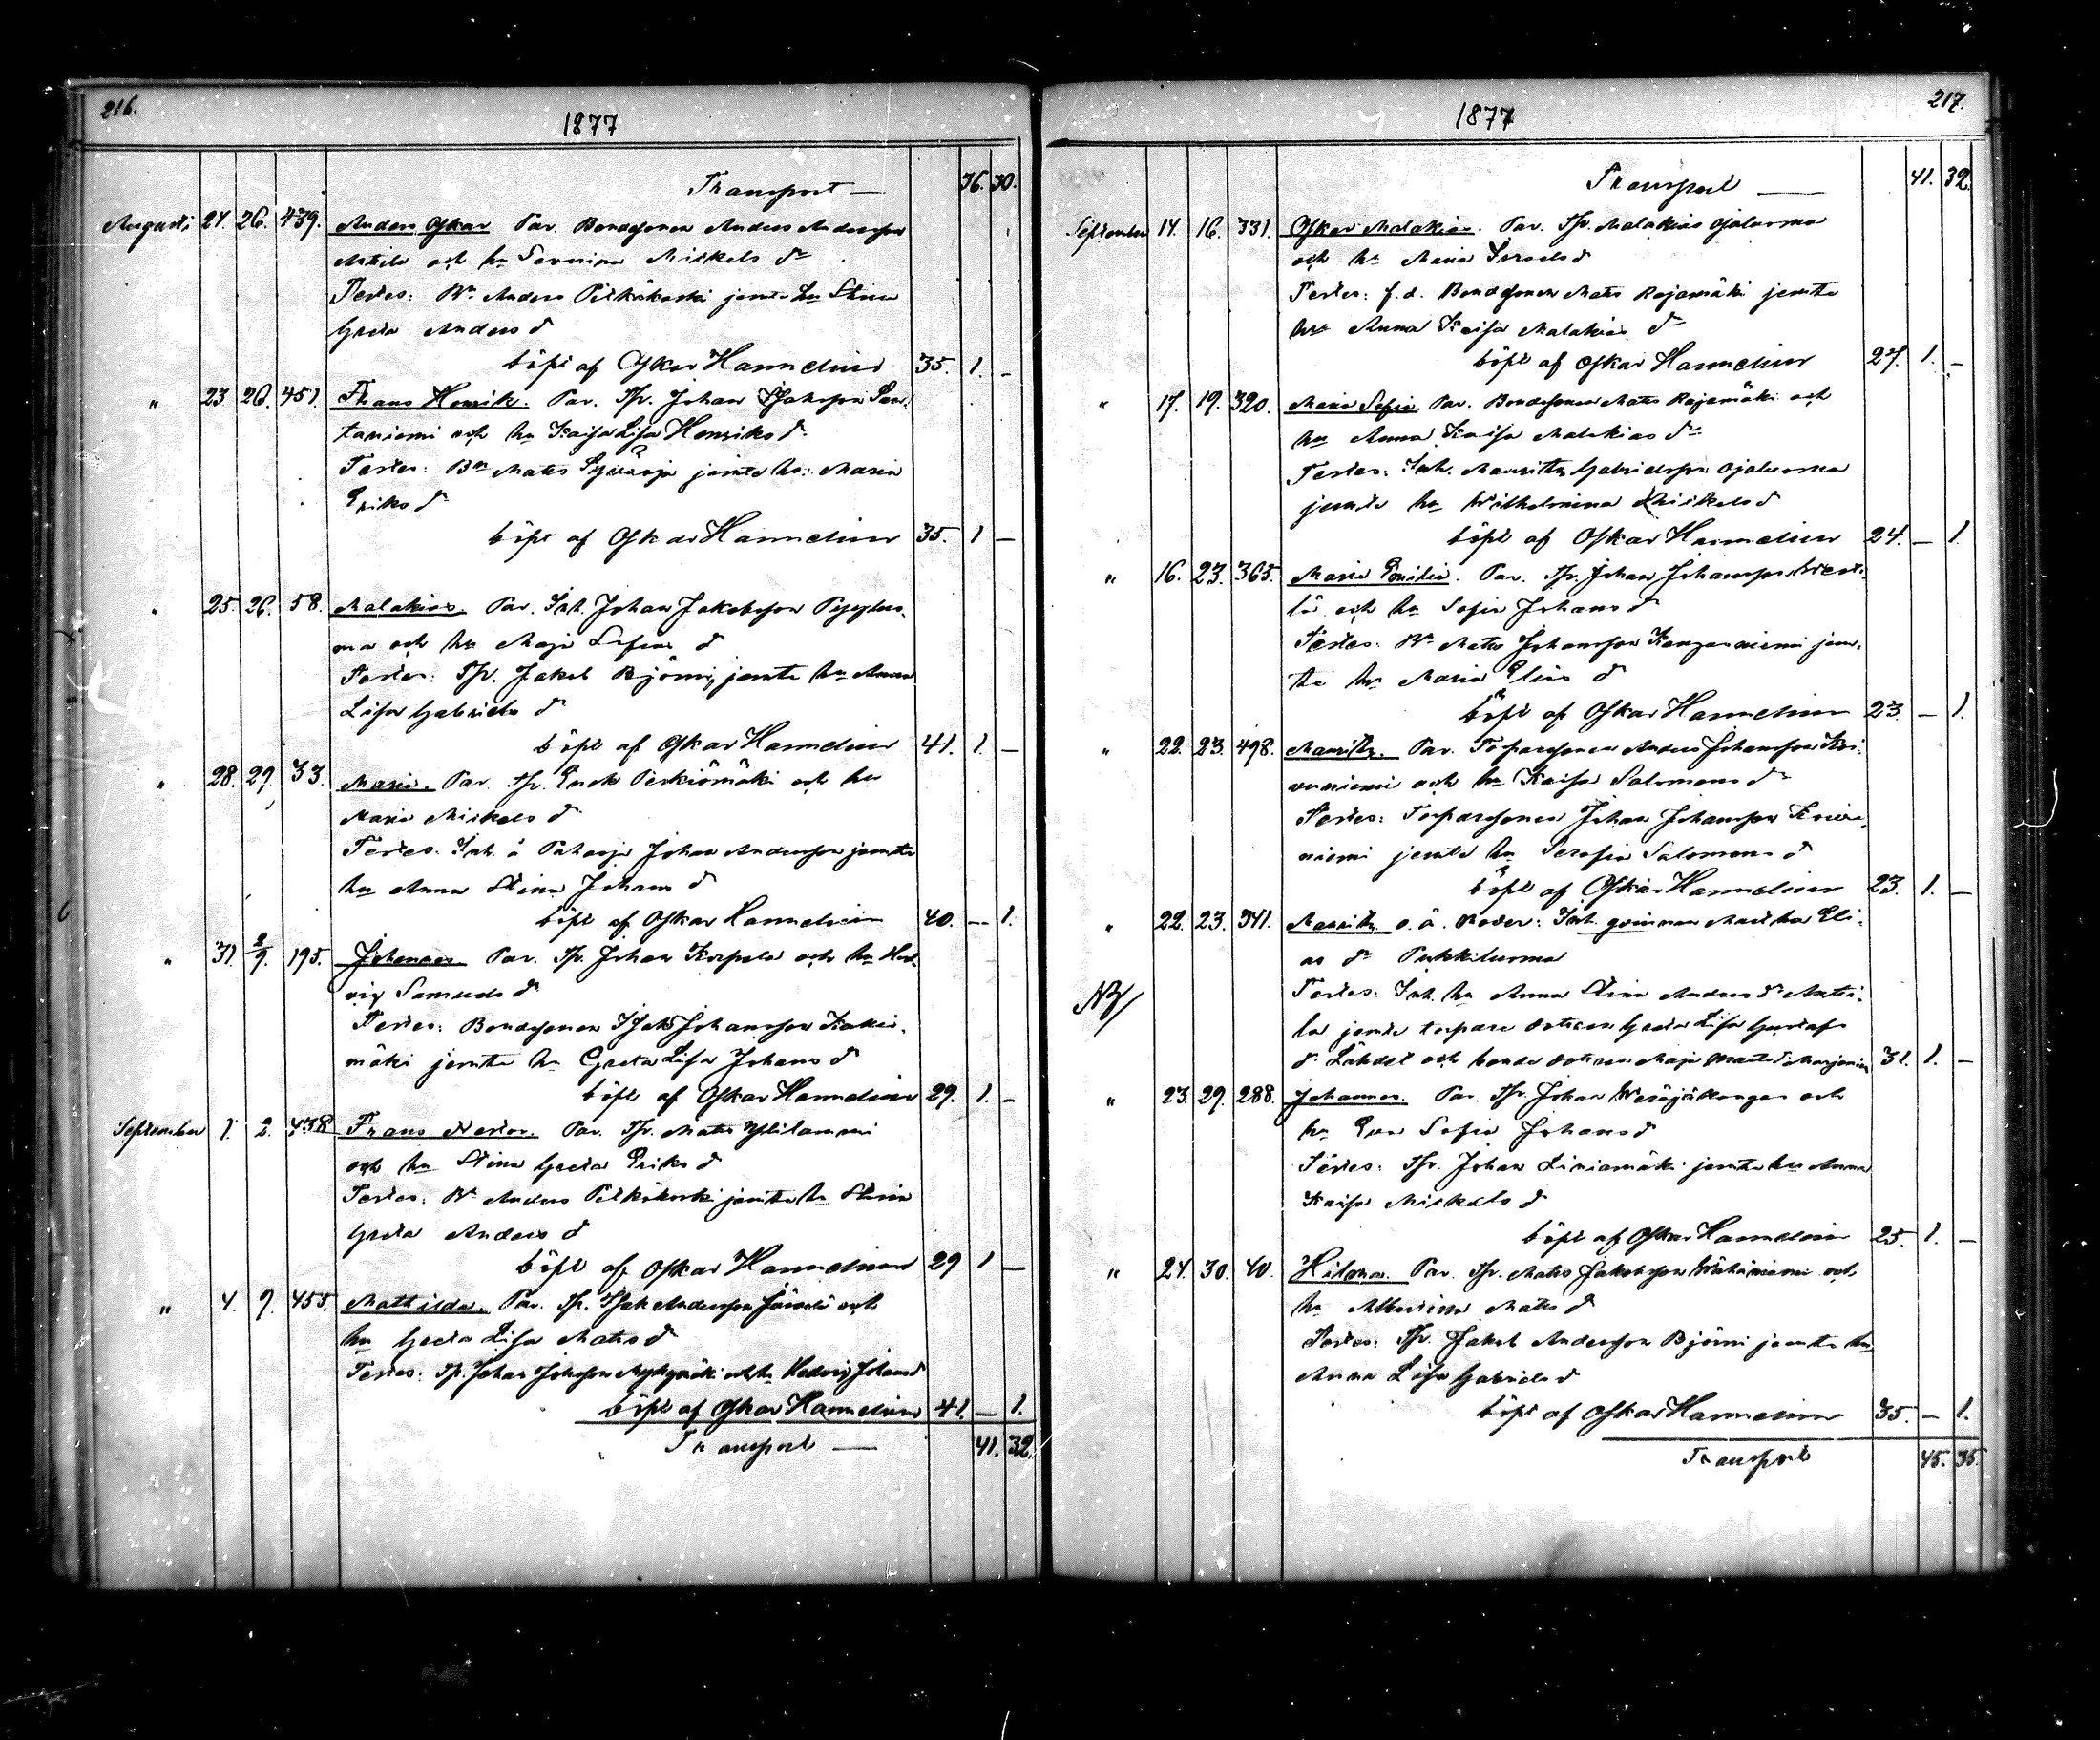 216.
1877
Transport — 36. 30.
Augusti 24. 26. 439. Anders Oskar. Par. Bondesonen Anders Andersson
Antila och hu Severina Mickels dr
Testes: Bn Anders Pitkäkoski jemte hu Stina
Greta Anders dr
döpt af Oskar Hannelius 35. 1. –
" 23 26. 451. Frans Henrik. Par. Tp. Johan Isaksson San-
taniemi och hu Kaisa Lisa Henriks dr
Testes: Bn Mats jemte hu: Maria
Eriks dr
döpt af Oskar Hannelius 35. 1 –
" 25. 26. 58. Malakias. Par. Inh. Johan Jakobsson
ma och hu Maja dr
Testes: Tp. Jakob Björni, jemte hu Anna
Lisa Gabriels dr
döpt af Oskar Hannelius 41. 1. –
" 28. 29. 33. Maria. Par. Tp. Enok Perkiömäki och hu
Maria Mickels dr
Testes. Inh. å Johan Andersson jemte
hu Anna Stina Johans dr
döpt af Oskar Hannelius 40. – 1.
" 31. 2/9. 195. Johannes. Par. Tp. Johan Korpela och hu Hed-
vig Samuels dr
Testes: Bondesonen Isak Johansson
mäki jemte hu Greta Lisa Johans dr
döpt af Oskar Hannelius 29. 1. –
September 1. 2. 438 Frans Nestor. Par. Tp. Mats Ylilammi
och hu Stina Greta Eriks dr
Testes: Bn Anders Pitkäkoski jemte hu Stina
Greta Anders dr
döpt af Oskar Hannelius 29 1 –
" 4. 9. 455. Mathilda. Par. Tp. Isak Andersson och
hu Greta Lisa Mats dr
Testes: Tp. Johan och hu Hedvig Johans dr
döpt af Oskar Hannelius 41. – 1.
Transport — 41. 32.
217.
1877
Transport — 41. 32.
September 14. 16. 331. Oskar Malakias. Par. Tp. Malakias Ojaluoma
och hu Maria Israels dr
Testes: f.d. Bondesonen Mats Rajamäki jemte
hu Anna Kaisa Malakias dr
döpt af Oskar Hannelius 27. 1. –
" 17. 19. 320. Maria Sofia. Par. Bondesonen Mats Rajamäki och
hu Anna Kaisa Malakias dr
Testes: Inh. Mauritz Gabrielsson Ojaluoma
jemte hu Wilhelmina Mickels dr
döpt af Oskar Hannelius 24. – 1.
" 16. 23. 365. Maria Emilia. Par. Tp. Johan Johansson
lä och hu Sofia Johans dr
Testes: Bn Mats Johansson Kangasniemi jem-
te hu Maria Elias dr
döpt af Oskar Hannelius 23. – 1.
" 22. 23. 498. Mauritz. Par. Torparesonen Anders Johansson Koi-
vuniemi och hu Kaisa Salomons dr
Testes: Torparesonen Johan Johansson Koivu-
niemi jemte hu Serafia Salomons dr
döpt af Oskar Hannelius 23. 1. –
" 22. 23. 341. Mauritz o.ä. Moder: Inh. qvinnan Martha Eli-
as dr Pukkiluoma
NB/ Testes: Inh. hu Anna Stina Anders dr Anti-
la jemte torpare dottren Greta Lisa Gustafs
dr Lähdet och bonde dottren Maja Mats dr 31. 1. –
" 23. 29. 288. Johannes. Par. Tp. Johan Wesajäkangas och
hu Eva Sofia Johans dr
Testes: Tp. Johan Liniamäki jemte hu Anna
Kaisa Mickels dr
döpt af Oskar Hannelius 25. 1. –
" 24. 30. 40. Hilma. Par. Tp. Mats Jakobsson Wähäniemi och
hu Albertina Mats dr
Testes: Tp. Jakob Andersson Björni jemte hu
Anna Lisa Gabriels dr
döpt af Oskar Hannelius 35. – 1.
Transport 45. 35.